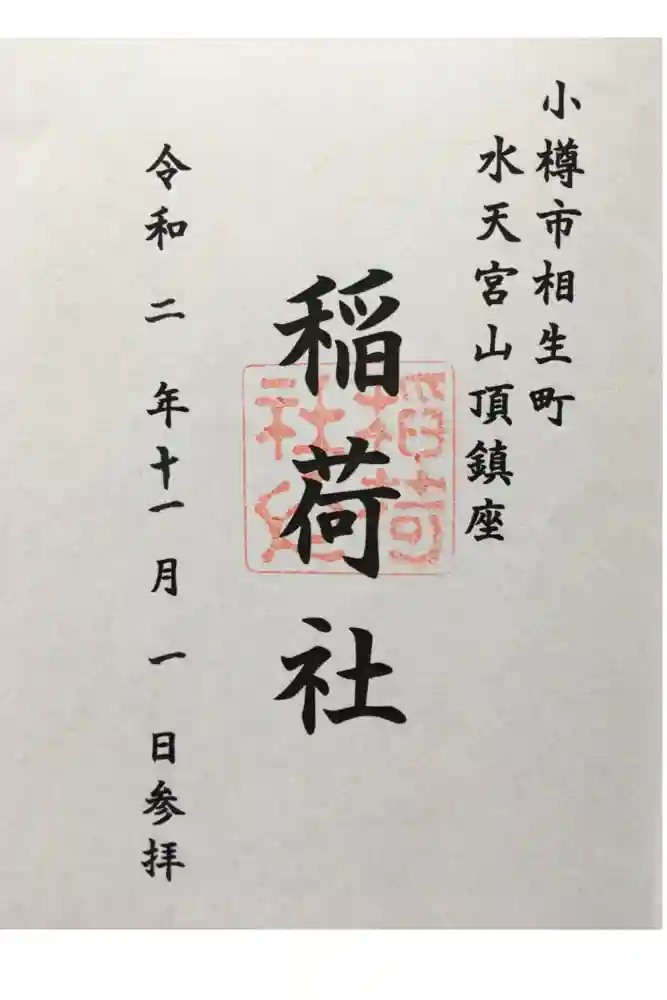 小樽市相生町
水天宮山頂鎮座
稲荷社
令和二年十一月一日参拝